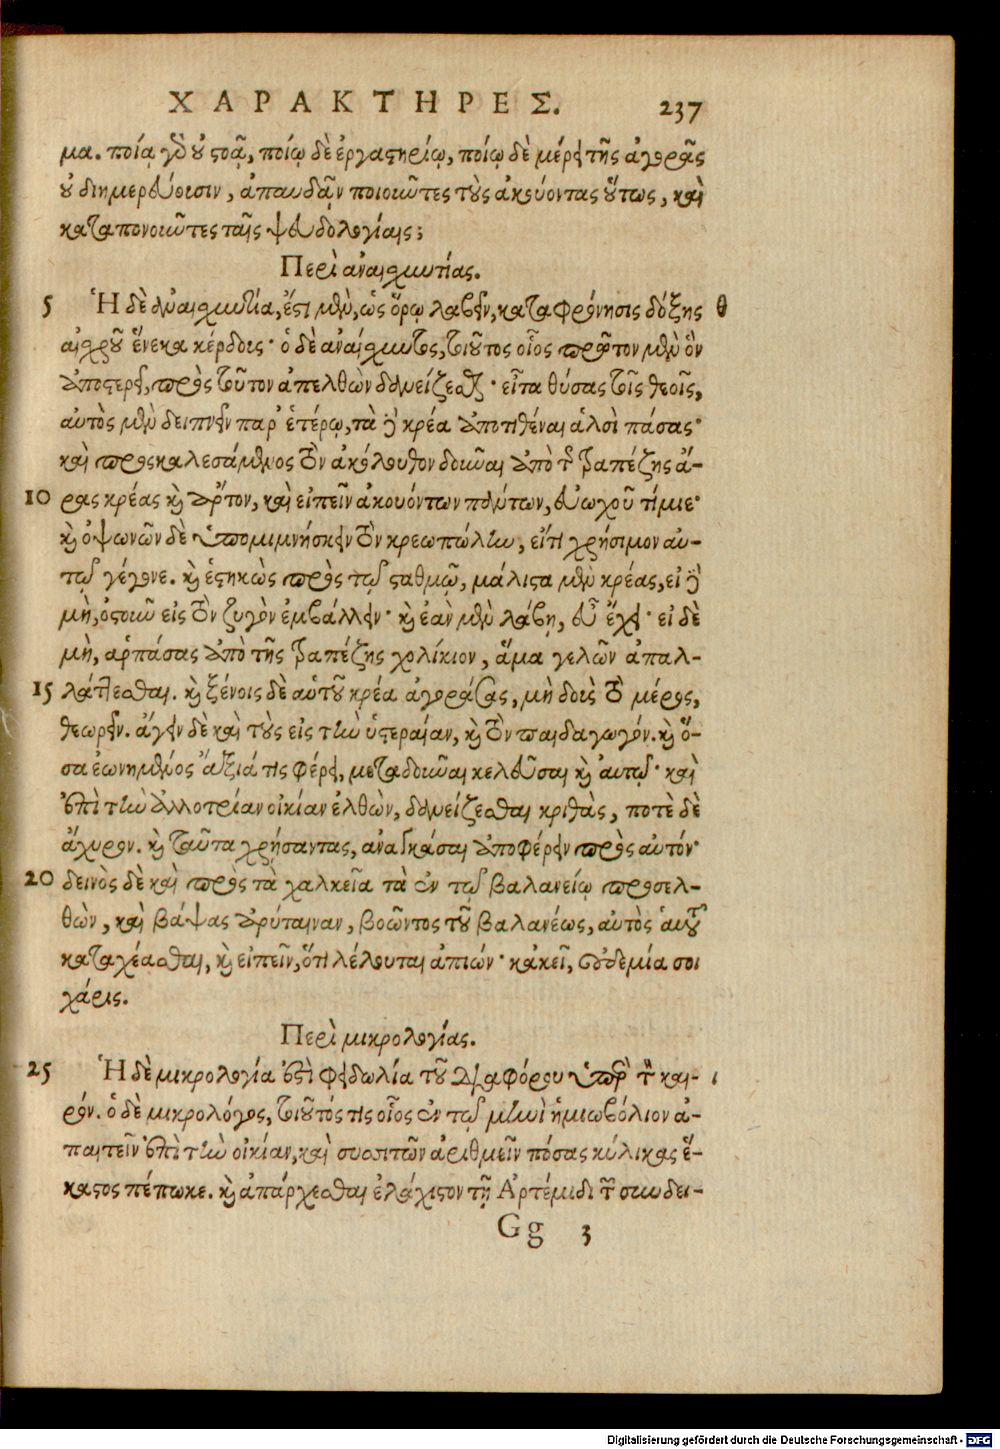 ΧΑΡΑΚΤΗΡΕΣ. 237
μα. ποίᾳ γὸ οὐ στοᾷ, ποίῳ δὲ ἐργαστηρίῳ, ποίῳ δὲ μέρει τῆς ἀγορᾶς
οὐ διημερεύουσιν, ἀπαυδᾷν ποιοιῶτες τοὺς ἀκούοντας οὕτως, καὶ
καταπονοιῶτες ταῖς ψευδολογίαις;
Περὶ ἀναισχυντίας.
5 Ἡ δὲ ἀναισχυντία, ἔστι μὲν, ὡς ὅρῳ λαβεῖν, καταφρόνησις δόξης θ
αἰσχροῦ ἕνεκα κέρδοις· ὁ δὲ ἀναίσχυντος, τοιοῦτος οἷος πρῶτον μὲν ὃν
ἀποστερεῖ, πρὸς τοῦτον ἀπελθὼν δανείζεσθαι· εἶτα θύσας τοῖς θεοῖς,
αὐτὸς μὲν δειπνεῖν παρ' ἑτέρῳ, τὰ δὲ κρέα ἀποτιθέναι ἁλσὶ πάσας·
καὶ προσκαλεσάμενος τὸν ἀκόλουθον δοῦναι ἀπὸ τῆς τραπέζης ἄ-
10 ρας κρέας καὶ ἄρτον, καὶ εἰπεῖν ἀκουόντων πάντων, εὐωχοῦ τίμιε·
καὶ ὀψωνῶν δὲ ὑπομιμνήσκειν τὸν κρεωπώλην, εἴτι χρήσιμον αὐ-
τῷ γέγονε. καὶ ἑστηκὼς πρὸς τῷ σταθμῷ, μάλιστα μὲν κρέας, εἰ δὲ
μὴ, ὀστοῦν εἰς τὸν ζυγὸν ἐμβάλλειν· καὶ ἐὰν μὲν λάβῃ, εὖ ἔχει· εἰ δὲ
μὴ, ἁρπάσας ἀπὸ τῆς τραπέζης χολίκιον, ἅμα γελῶν ἀπαλ-
15 λάττεσθαι. καὶ ξένοις δὲ αὐτοῦ κρέα ἀγοράσας, μὴ δοὺς τὸ μέρος,
θεωρεῖν. ἄγειν δὲ καὶ τοὺς εἰς τὴν ὑστεραίαν, καὶ τὸν παιδαγωγόν. καὶ ὅ-
σα ἐωνημένος ἄξιά τις φέρει, μεταδοῦναι κελεῦσαι καὶ αὐτῷ· καὶ
ἐπὶ τὴν ἀλλοτρίαν οἰκίαν ἐλθὼν, δανείζεσθαι κριθὰς, ποτὲ δὲ
ἄχυρον. καὶ ταῦτα χρήσαντας, ἀναγκάσαι ἀποφέρειν πρὸς αὐτόν·
20 δεινὸς δὲ καὶ πρὸς τὰ χαλκεῖα τὰ ἐν τῷ βαλανείῳ προσελ-
θὼν, καὶ βάψας ἀρύταιναν, βοῶντος τοῦ βαλανέως, αὐτὸς αὑτοῦ
καταχέασθαι, καὶ εἰπεῖν, ὅτι λέλουται ἀπιών· κἀκεῖ, οὐδεμία σοι
χάρις.
Περὶ μικρολογίας.
25 Ἡ δὲ μικρολογία ἐστὶ φειδωλία τοῦ διαφόρου ὑπὲρ τὸν και- ι
ρόν. ὁ δὲ μικρολόγος, τοιοῦτός τις οἷος ἐν τῷ μηνὶ ἡμιωβόλιον ἀ-
παιτεῖν ἐπὶ τὴν οἰκίαν, καὶ συσσιτῶν ἀριθμεῖν πόσας κύλικας ἕ-
καστος πέπωκε. καὶ ἀπάρχεσθαι ἐλάχιστον τῇ Ἀρτέμιδι τῶν συνδει-
Gg 3
Digitalisierung gefördert durch die Deutsche Forschungsgemeinschaft - DFG